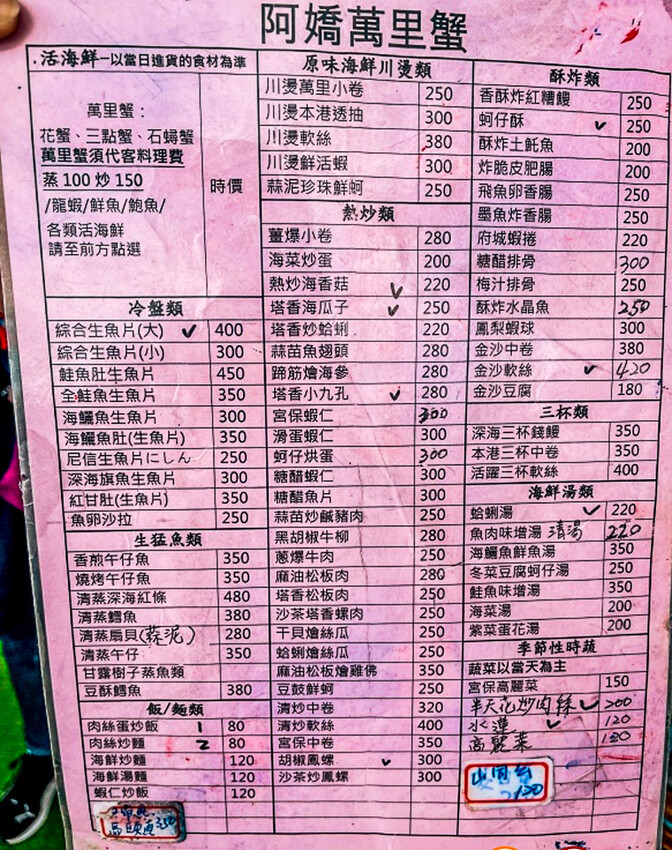 阿嬌萬里蟹
活海鮮—以當日進貨的食材為準
萬里蟹：
花蟹、三點蟹、石蟳蟹
萬里蟹須代客料理費
蒸100炒150
/龍蝦/鮮魚/鮑魚/
各類活海鮮
請至前方點選
時價
冷盤類
綜合生魚片(大) ✓ 400
綜合生魚片(小) 300
鮭魚肚生魚片 450
全鮭魚生魚片 350
海鱺魚生魚片 300
海鱺魚肚(生魚片) 350
尼信生魚片にしん 250
深海旗魚生魚片 300
紅甘肚(生魚片) 350
魚卵沙拉 250
生猛魚類
香煎午仔魚 350
燒烤午仔魚 350
清蒸深海紅條 480
清蒸鱈魚 380
清蒸扇貝(蒜泥) 280
清蒸午仔 350
甘露樹子蒸魚類
豆酥鱈魚 380
飯/麵類
肉絲蛋炒飯 1 80
肉絲炒麵 2 80
海鮮炒麵 120
海鮮湯麵 120
蝦仁炒飯 120
原味海鮮川燙類
川燙萬里小卷 250
川燙本港透抽 300
川燙軟絲 380
川燙鮮活蝦 300
蒜泥珍珠鮮蚵 250
熱炒類
薑爆小卷 280
海菜炒蛋 200
熱炒海香菇 ✓ 220
塔香海瓜子 ✓ 250
塔香炒蛤蜊 220
蒜苗魚翅頭 280
蹄筋燴海參 280
塔香小九孔 ✓ 280
宮保蝦仁 300
滑蛋蝦仁 300
蚵仔烘蛋 300
糖醋蝦仁 300
糖醋魚片 300
蒜苗炒鹹豬肉 250
黑胡椒牛柳 280
蔥爆牛肉 250
麻油松板肉 280
塔香松板肉 250
沙茶塔香螺肉 250
干貝燴絲瓜 250
蛤蜊燴絲瓜 250
麻油松板燴雞佛 350
豆鼓鮮蚵 250
清炒中卷 320
清炒軟絲 400
宮保中卷 350
胡椒鳳螺 ✓ 300
沙茶炒鳳螺 300
酥炸類
香酥炸紅糟鰻 250
蚵仔酥 ✓ 250
酥炸土魠魚 200
炸脆皮肥腸 200
飛魚卵香腸 250
墨魚炸香腸 250
府城蝦捲 220
糖醋排骨 300
梅汁排骨 250
酥炸水晶魚 250
鳳梨蝦球 300
金沙中卷 380
金沙軟絲 ✓ 420
金沙豆腐 180
三杯類
深海三杯錢鰻 350
本港三杯中卷 350
活躍三杯軟絲 400
海鮮湯類
蛤蜊湯 ✓ 220
魚肉味增湯 清湯 220
海鱺魚鮮魚湯 350
冬菜豆腐蚵仔湯 250
鮭魚味增湯 350
海菜湯 200
紫菜蛋花湯 200
季節性時蔬
蔬菜以當天為主
宮保高麗菜 150
半天花炒肉絲 ✓ 200
水蓮 ✓ 120
高麗菜 120